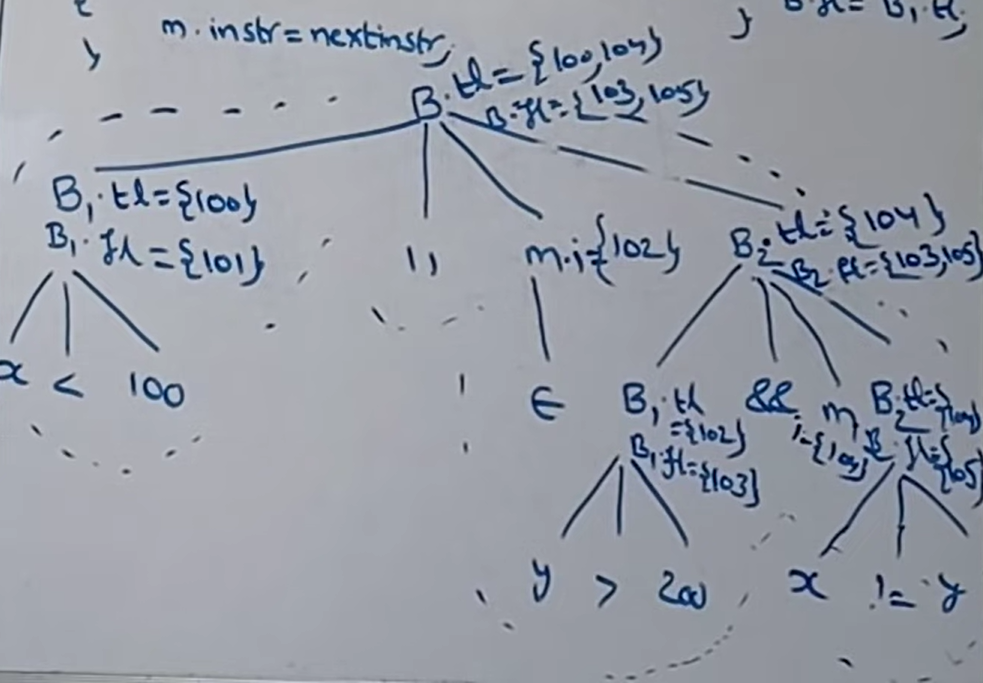 {
} m.instr=nextinstr;
} B.fl= B1.fl;
B.tl={100,104}
B.fl={103,105}
B1.tl={100}
B1.fl={101}
||
m.i={102}
B2.tl={104}
B2.fl={103,105}
x < 100
ϵ
B1.tl
={102}
B1.fl={103}
&&
m
.i={104}
B2.tl={104}
B2.fl={105}
y > 200
x != y